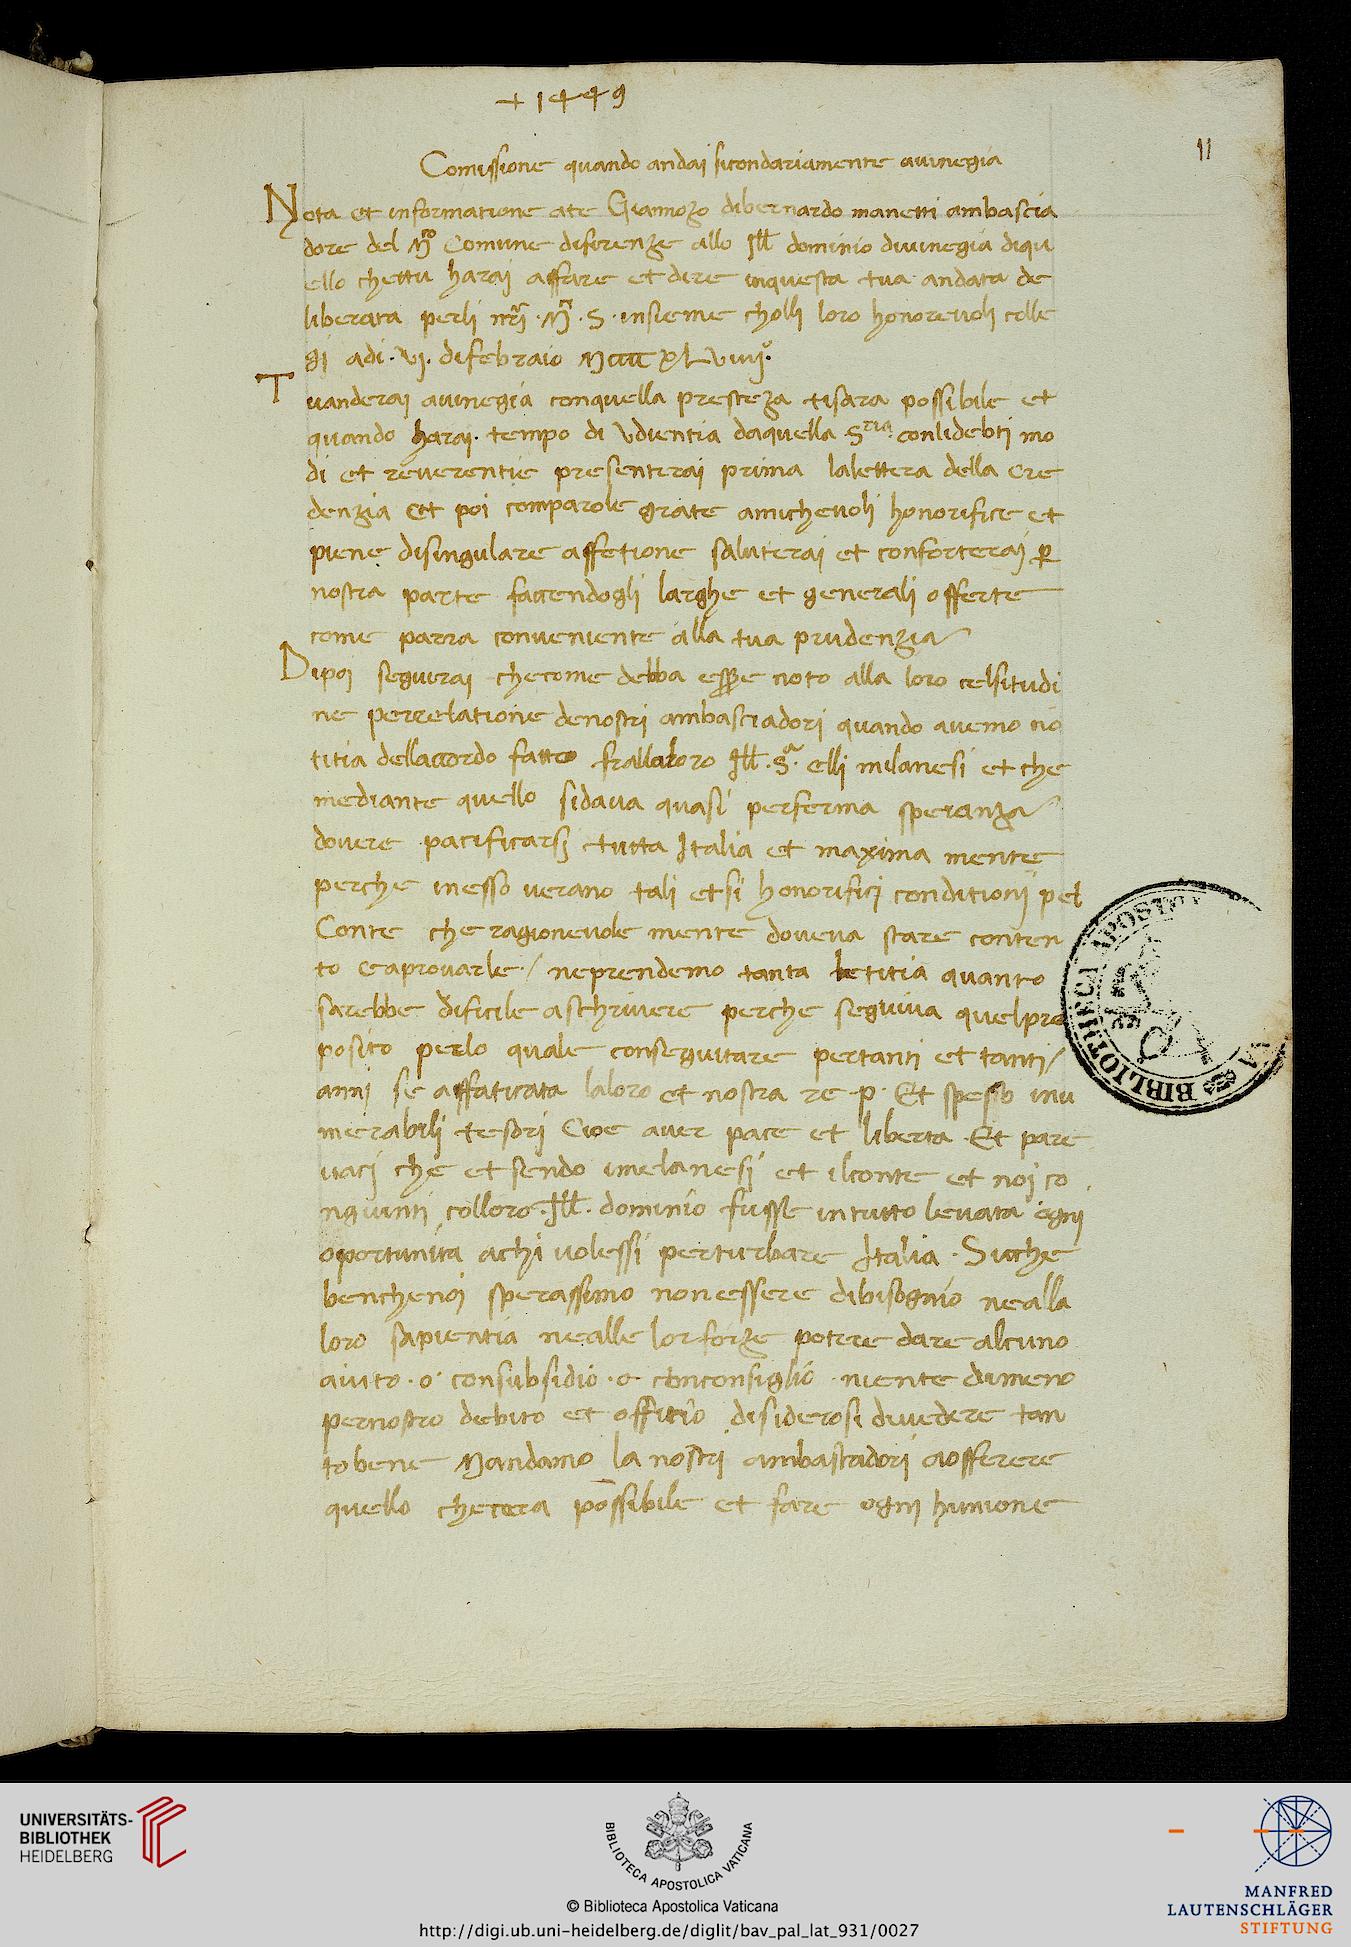 + 1449
11
Comissione quando andai sicondariamente avinegia
Nota et informatione ate Giannozo dibernardo manetti ambascia
dore del Mco Comune difirenze allo Ill dominio divinegia diqu
ello chettu harai affare et dire inquesta tua andata de
liberata perli nri · M · S · insieme cholli loro honorevoli colle
gi adi · vj · difebraio MccccxLviiij°
Tu anderai avinegia conquella presteza tisara possibile et
quando harai · tempo di Udientia daquella Sria conlidebti mo
di et reverentie presenterai prima lalettera della Cre
denzia Et poi comparole grate amichevoli honorifice et
piene disingulare affetione saluterai et conforterai p
nostra parte faccendogli larghe et generali offerte
come parra conveniente alla tua prudenzia
Dipoi seguirai checome debba essere noto alla loro celsitudi
ne perrelatione denostri ambasciadori quando avemo no
titia dellaccordo fatto frallaloro Ill · Sa · elli milanesi et che
mediante quello sidava quasi perferma speranza
dovere pacificarsj tutta Italia et maxima mente
perche inesso verano tali etsi honorifici conditionj pel
Conte che ragionevole mente doveva stare conten
to Eaprovarle / neprendemo tanta letitia quanto
sarebbe dificile aschrivere perche seguiva quelpro
posito perlo quale conseguitare pertanti et tanti /
anni se affaticata laloro et nostra re · p · Et spesso inu
merabili tesori Cioe aver pace et liberta · Et pare
vaci che et sendo imelanesi et ilconte et noi co
ngiunti colloro · Ill · dominio fusse intutto levata ogni
oportunita achi volessi perturbare Italia · Sicche
benchenoi sperassimo nonessere dibisognio nealla
loro sapientia nealle lorforze potere dare alcuno
aiuto · o · consubsidio · o · conconsiglio · niente dimeno
pernostro debito et offitio disiderosi divedere tan
tobene Mandamo la nostri ambasciadori aofferere
quello checcera possibile et fare ogni hunione
BIBLIOTHECA APOSTO
UNIVERSITÄTS-
BIBLIOTHEK
HEIDELBERG
BIBLIOTECA APOSTOLICA VATICANA
© Biblioteca Apostolica Vaticana
http://digi.ub.uni-heidelberg.de/diglit/bav_pal_lat_931/0027
MANFRED
LAUTENSCHLÄGER
STIFTUNG